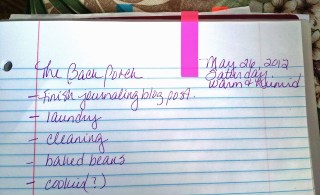 May 26, 2012
Saturday
warm & humid
The Back Porch
- finish journaling blog post.
- laundry
- cleaning
- baked beans
- cookies(?)